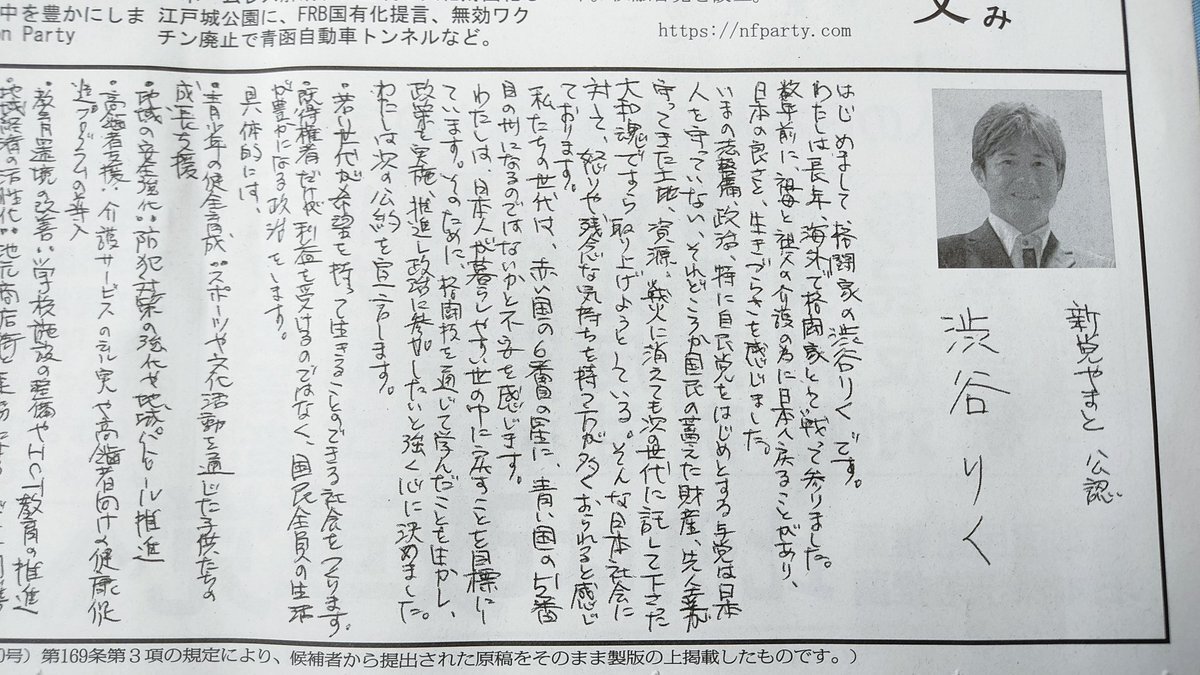 中を豊かにしま
on Party
江戸城公園に、FRB国有化提言、無効ワク
チン廃止で青函自動車トンネルなど。
https://nfparty.com
み
新党やまと 公認
渋谷りく
はじめまして、格闘家の渋谷りくです。
わたしは長年、海外で格闘家として戦って参りました。
数年前に、祖母と祖父の介護の為に日本へ戻ることがあり、
日本の良さと、生きづらさを感じました。
いまの法整備、政治、特に自民党をはじめとする与党は日本
人を守っていない、それどころか国民の蓄えた財産、先人達が
守ってきた土地、資源、戦火に消えても次の世代に託して下さった
大和魂ですら取り上げようとしている。そんな日本社会に
対して、怒りや残念な気持ちを持つ方が多くおられると感じ
ております。
私たちの世代は、赤い国の6番目の星に、青い国の51番
目の州になるのではないかと不安を感じます。
わたしは、日本人が暮らしやすい世の中に戻すことを目標にし
ています。そのために、格闘技を通じて学んだことを生かし、
政策を実施、推進し政治に参加したいと強く心に決めました。
わたしは次の公約を宣言します。
・若い世代が希望を持って生きることのできる社会をつくります。
・既得権者だけが利益を受けるのではなく、国民全員の生活
が豊かになる政治をします。
具体的には、
・青少年の健全育成:スポーツや文化活動を通じた子供たちの
成長支援
・地域の安全強化:防犯対策の強化や地域パトロール推進
・高齢者支援:介護サービスの充実や高齢者向け健康促
進プログラムの導入
・教育環境の改善:学校施設の整備やICT教育の推進
・地域経済の活性化:地元商店街
0号)第169条第3項の規定により、候補者から提出された原稿をそのまま製版の上掲載したものです。)